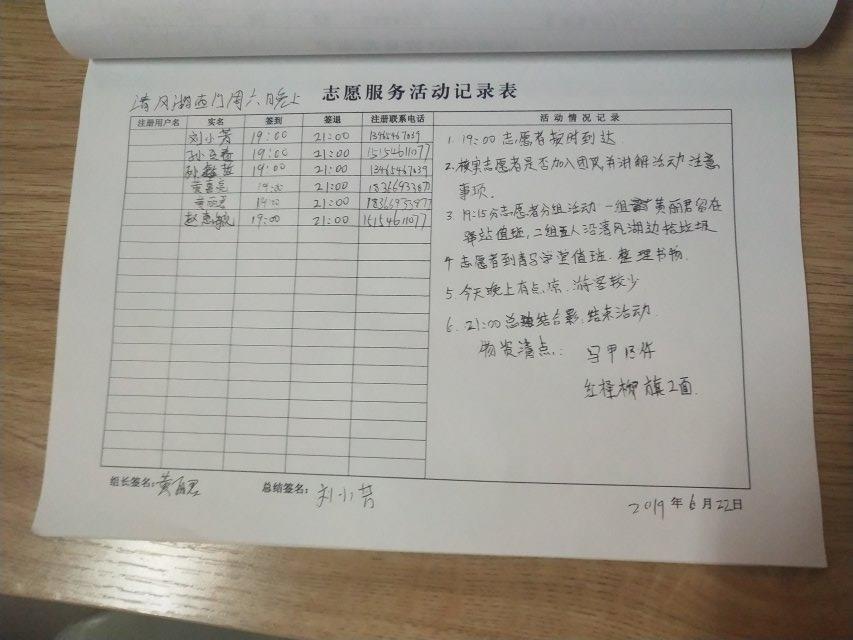 清风湖西门周六晚上 志愿服务活动记录表
注册用户名 实名 签到 签退 注册联系电话 活动情况记录
刘小芳 19:00 21:00 13465467039
19:00 21:00 15154611077
19:00 21:00 13465467039
19:00 21:00
19:00 21:00
赵惠敏 19:00 21:00 15154611077
1. 19:00 志愿者按时到达
2. 核实志愿者是否加入团队,并讲解活动注意
事项.
3. 19:15分志愿者分组活动 一组 黄丽君留在
驿站值班,二组五人沿清风湖边捡垃圾
4 志愿者到青 学堂值班. 整理书物.
5 今天晚上有点凉. 游客较少
6. 21:00 总结合影.结束活动.
物资清点: 马甲 件
红柽柳旗2面.
组长签名:黄丽君 总结签名:刘小芳
2019年6月22日